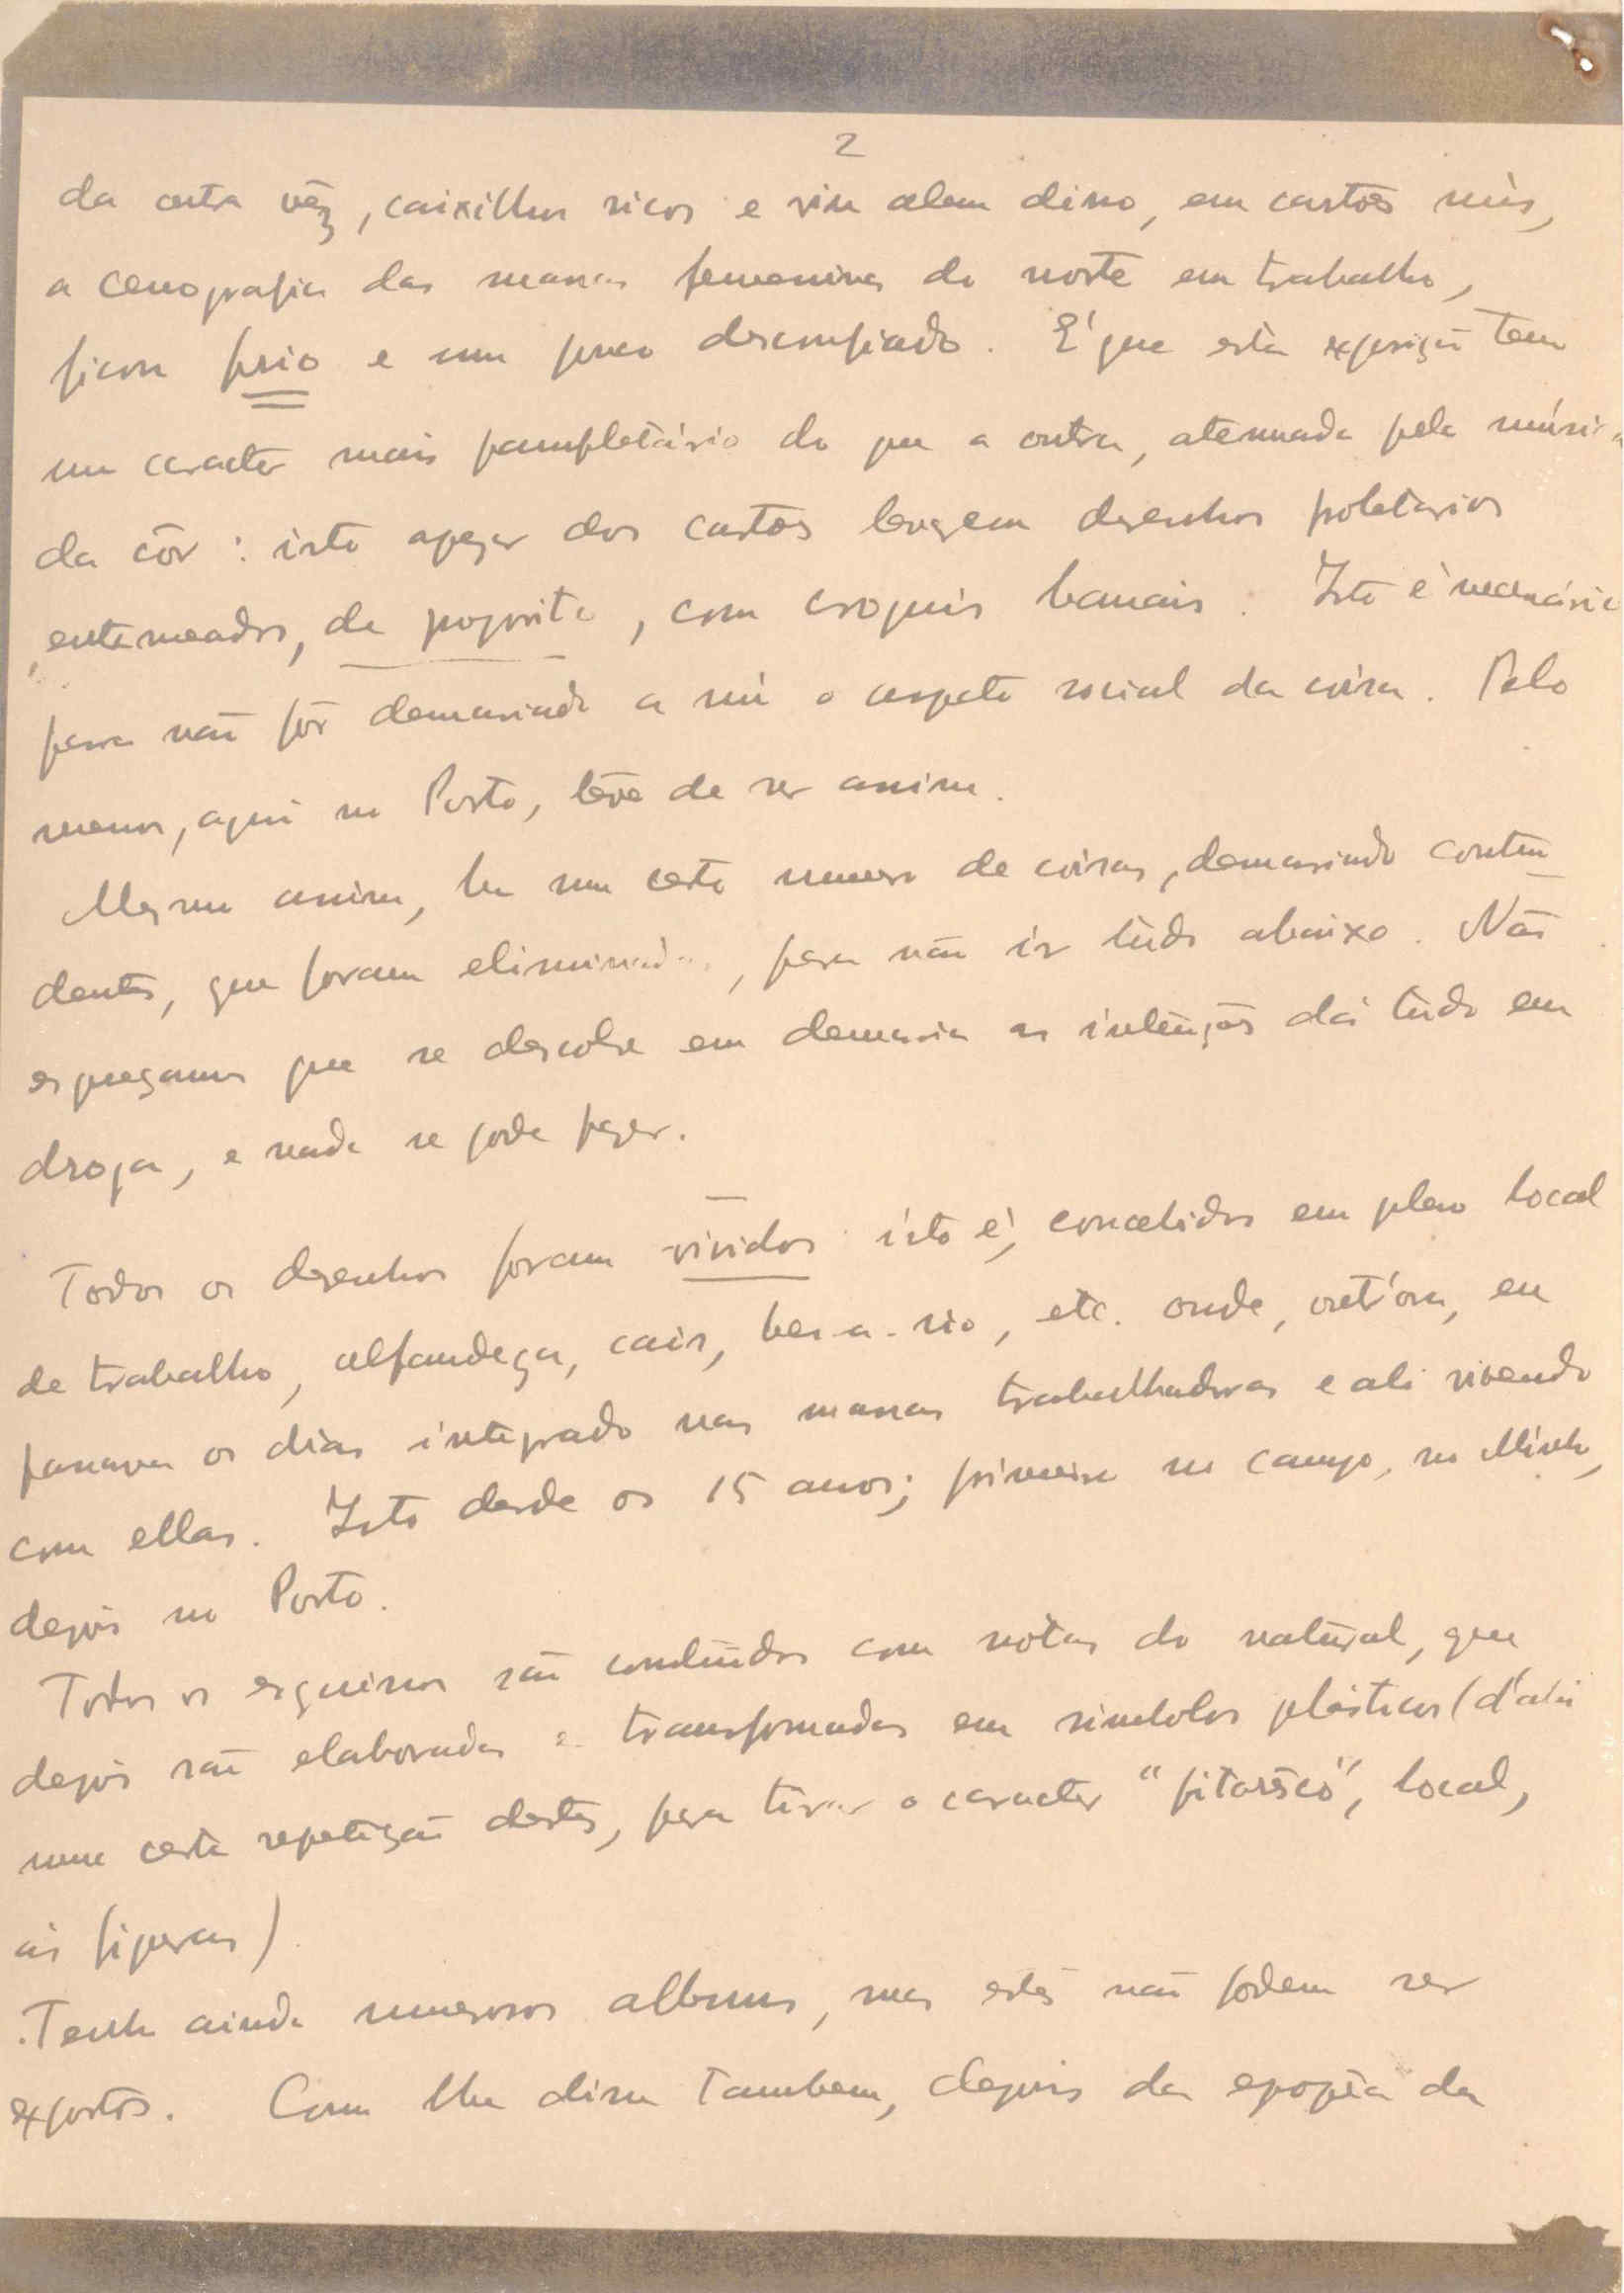 2
da outra vêz, caixilhos ricos e viu alem disso, em cartões nús,
a cenografia das massas femeninas do norte em trabalho,
ficou frio e um pouco desconfiado. E' que esta exposição tem
um caracter mais pamfletário do que a outra, atenuada pela música
da côr: isto apezar dos cartões levarem desenhos proletarios
entremeados, de proposito, com croquis banais. Isto é necessário
para não pôr demasiado a nú o aspeto social da coisa. Pelo
menos, aqui no Porto, teve de ser assim.
Mesmo assim, ha um certo numero de coisas, demasiado conten-
dentes, que foram eliminadas, para não ir tudo abaixo. Não
esqueçamos que se descobre em demasia as intenções dá tudo em
droga, e nada se pode fazer.
Todos os desenhos foram vividos isto é, concebidos em pleno local
de trabalho, alfandega, cais, beira-rio, etc. onde, outr'ora, eu
passava os dias integrado nas massas trabalhadoras e ali vivendo
com ellas. Isto desde os 15 anos; primeiro no campo, no Minho,
depois no Porto.
Todos os esquissos são construidos com nótas do natural, que
depois são elaboradas e transformadas em simbolos plásticos (d'ahi
uma certa repetição destes, para tirar o caracter "pitorêsco", local,
ás figuras)
Tenho ainda numerosos albuns, mas estes não podem ser
expostos. Como lhe disse tambem, depois da epopêa da